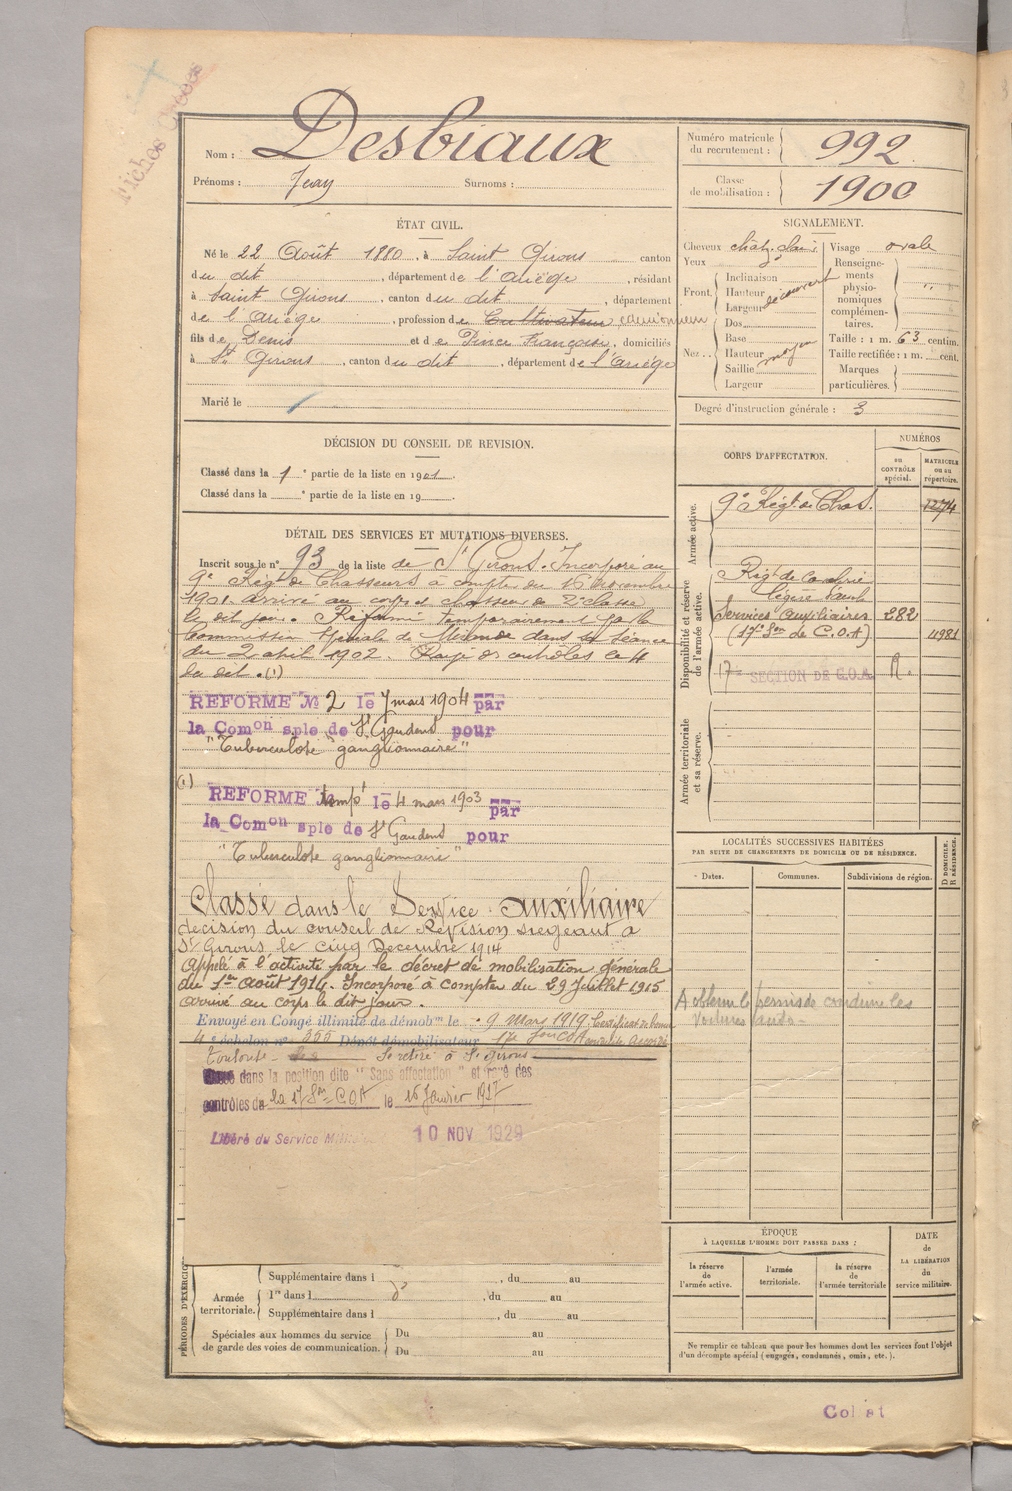 Fiches Croces
Nom : Desbiaux
Prénoms : Jean Surnoms :
Numéro matricule du recrutement : 992
Classe de mobilisation : 1900
ÉTAT CIVIL.
Né le 22 Août 1880, à Saint Girons canton
du dit, département de l'Ariège, résidant
à Saint Girons, canton du dit, département
de l'Ariège, profession de Cultivateur camionneur
fils de Denis et de Pince Françoise, domiciliés
à St Girons, canton du dit, département de l'Ariège
Marié le
SIGNALEMENT.
Cheveux chât. clair
Yeux
Front.
Inclinaison
Hauteur découvert
Largeur
Nez..
Dos
Base
Hauteur moyen
Saillie
Largeur
Visage ovale
Renseignements physionomiques complémentaires. "
Taille : 1 m. 63 centim.
Taille rectifiée : 1 m. cent.
Marques particulières.
Degré d'instruction générale : 3
DÉCISION DU CONSEIL DE REVISION.
Classé dans la 1e partie de la liste en 1901.
Classé dans la e partie de la liste en 19
DÉTAIL DES SERVICES ET MUTATIONS DIVERSES.
Inscrit sous le n° 93 de la liste de St Girons. Incorporé au
9e Régt de Chasseurs à compter du 16 novembre
1901. arrivé au corps et chasseur de 2e classe
le dit jour. Réformé temporairement par la
Commission Spéciale de Mirande dans sa séance
du 2 avril 1902. Rayé des contrôles le 4
du dit. (1)
REFORME No 2 le 7 mars 1904 par
la Comon sple de St Gaudens pour
"Tuberculose ganglionnaire"
(1)
REFORME tempt le 4 mars 1903 par
la Comon sple de St Gaudens pour
"Tuberculose ganglionnaire"
Classé dans le Service auxiliaire
décision du conseil de Révision siégeant à
St Girons, le cinq Décembre 1914
Appelé à l'activité par le décret de mobilisation générale
du 1er Août 1914. Incorporé à compter du 29 Juillet 1915
arrivé au corps le dit jour.
Envoyé en Congé illimité de démobon le 9 Mars 1919 Certificat de bonne
4e échelon n° 355 Dépôt démobilisateur 17e Son COA conduite accordé
Toulouse Se retire à St Girons
dans la position dite "Sans affectation" et rayé des
contrôles de la 17 Son COA le 15 Janvier 1927
Libéré du Service Mili 10 NOV 1929
CORPS D'AFFECTATION.
NUMÉROS
au CONTRÔLE spécial.
MATRICULE ou au répertoire.
Armée active.
9e Régt de Chas. 1274
Disponibilité et réserve de l'armée active.
Régt de Cavalerie
légère Tarb
Services auxiliaires 282
(17e Son de C.O.A) 11981
17e SECTION DE C.O.A. R.
Armée territoriale et sa réserve.
LOCALITÉS SUCCESSIVES HABITÉES
PAR SUITE DE CHANGEMENTS DE DOMICILE OU DE RÉSIDENCE.
Dates.
Communes.
Subdivisions de région.
D DOMICILE.
R RÉSIDENCE.
A obtenu le permis de conduire les
voitures auto-
PÉRIODES D'EXERCICE
Armée territoriale.
Supplémentaire dans l , du au
1re dans l , du au
Supplémentaire dans l , du au
Spéciales aux hommes du service de garde des voies de communication.
Du au
Du au
ÉPOQUE
À LAQUELLE L'HOMME DOIT PASSER DANS :
la réserve de l'armée active.
l'armée territoriale.
la réserve de l'armée territoriale
DATE de LA LIBÉRATION du service militaire.
Ne remplir ce tableau que pour les hommes dont les services font l'objet
d'un décompte spécial (engagés, condamnés, omis, etc.).
Col at